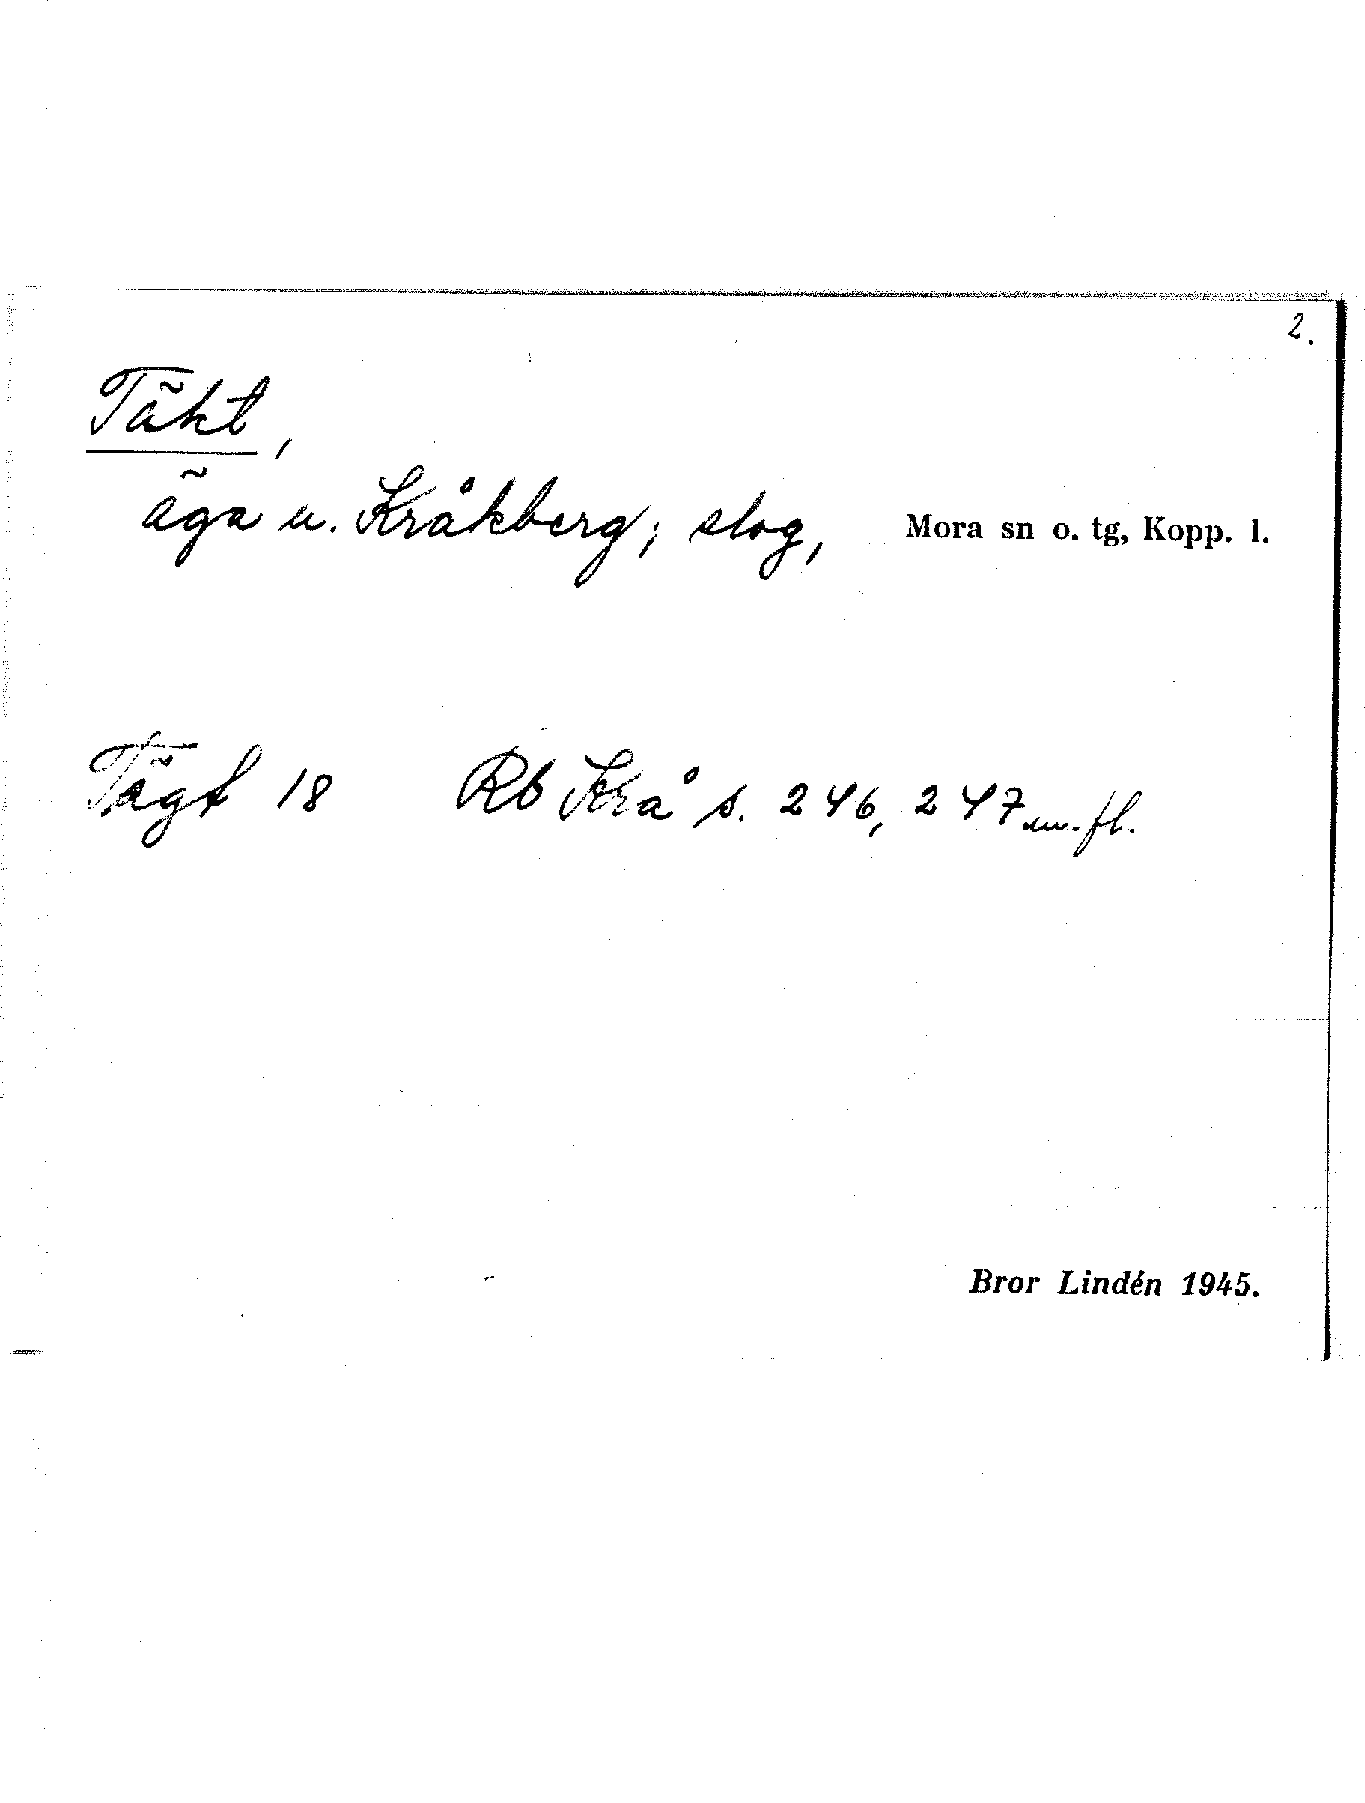 2.
Täkt,
äga u. Kråkberg; slog, Mora sn o. tg, Kopp. l.
Tägt 18 Rb Krå s. 246, 247 m. fl.
Bror Lindén 1945.